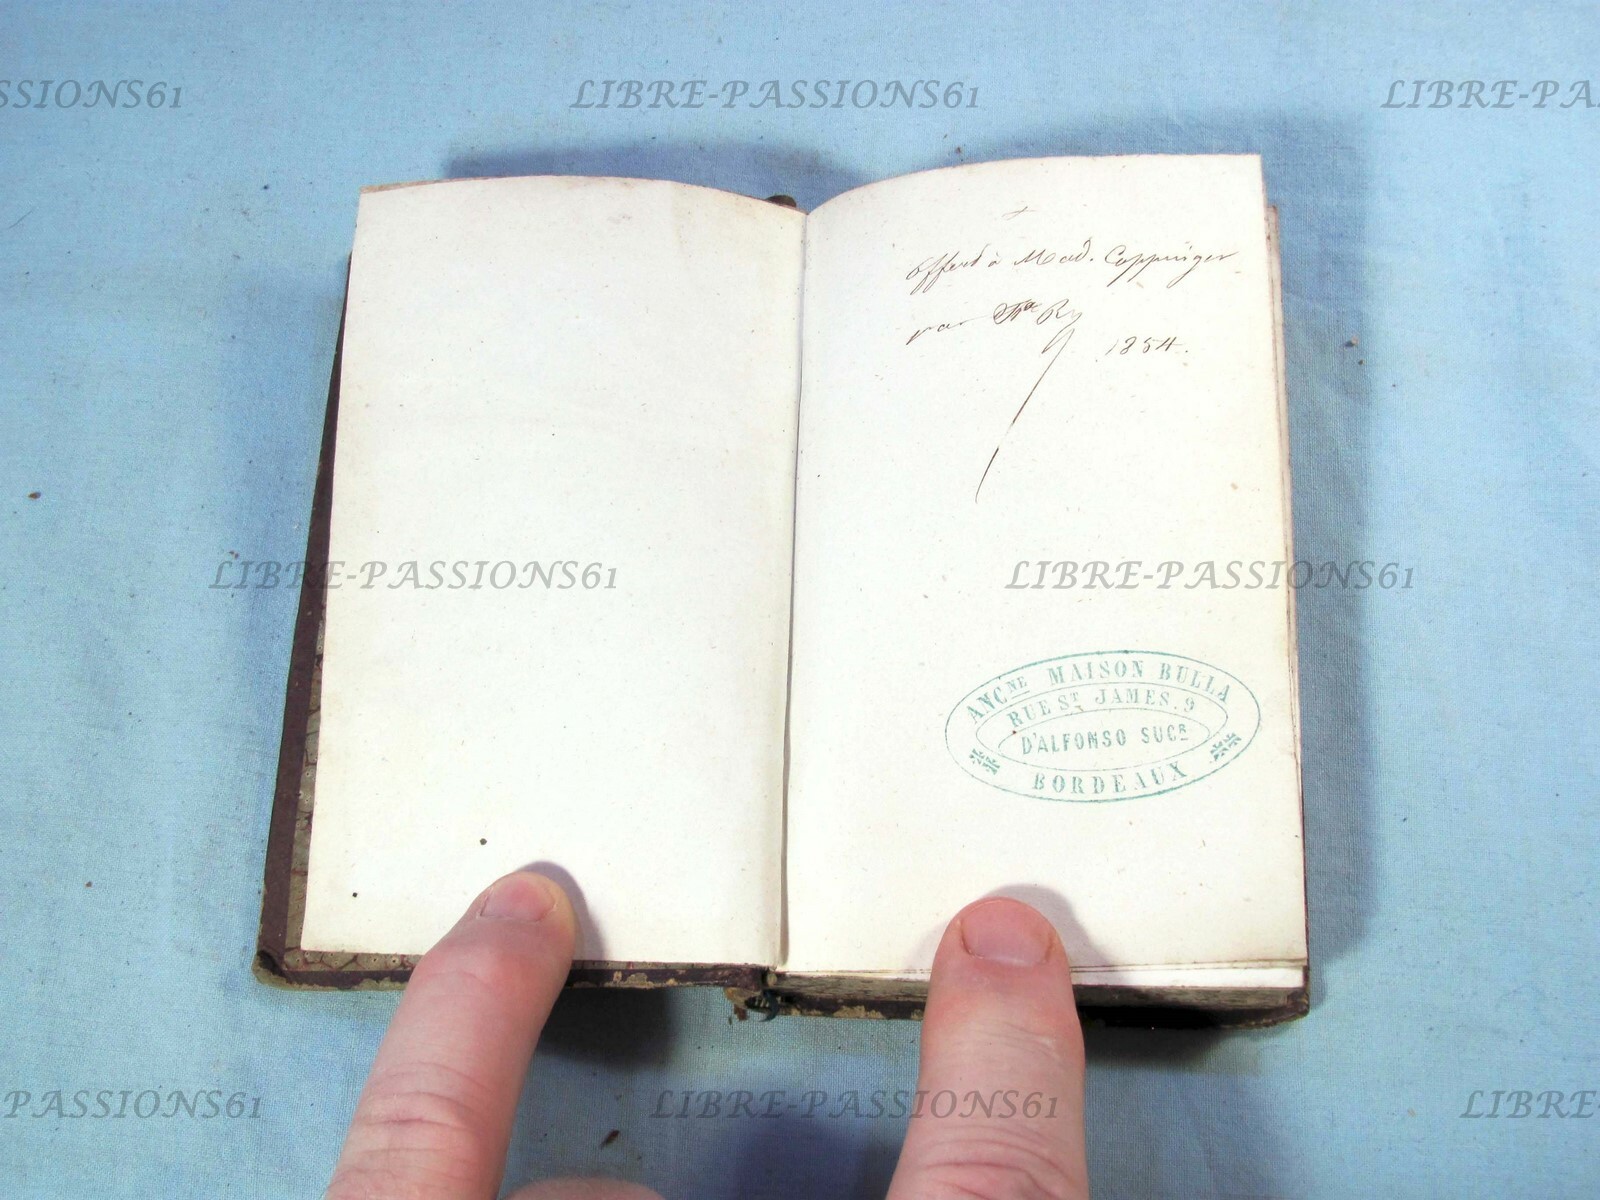 SSIONS61
LIBRE-PASSIONS61
LIBRE-PA
offert à Mad. Coppinger
par
1854.
LIBRE-PASSIONS61
LIBRE-PASSIONS61
ANCNE MAISON BULLA
RUE ST JAMES. 9
D'ALFONSO SUCR
BORDEAUX
PASSIONS61
LIBRE-PASSIONS61
LIBRE-